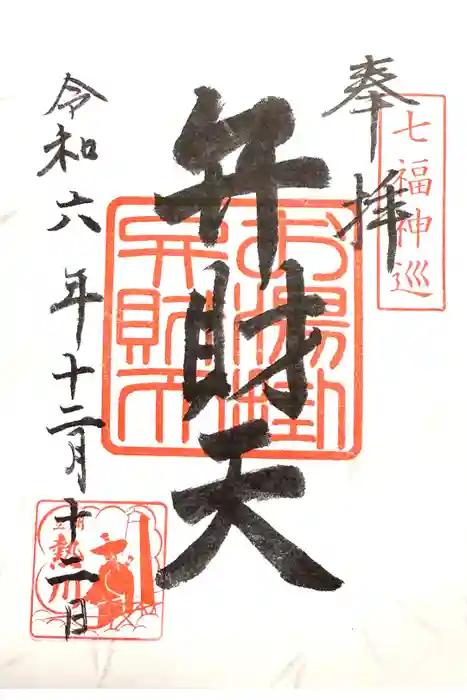 七福神巡
奉拝
弁財天
お湯掛
弁財天
令和六年十二月十二日
熱川